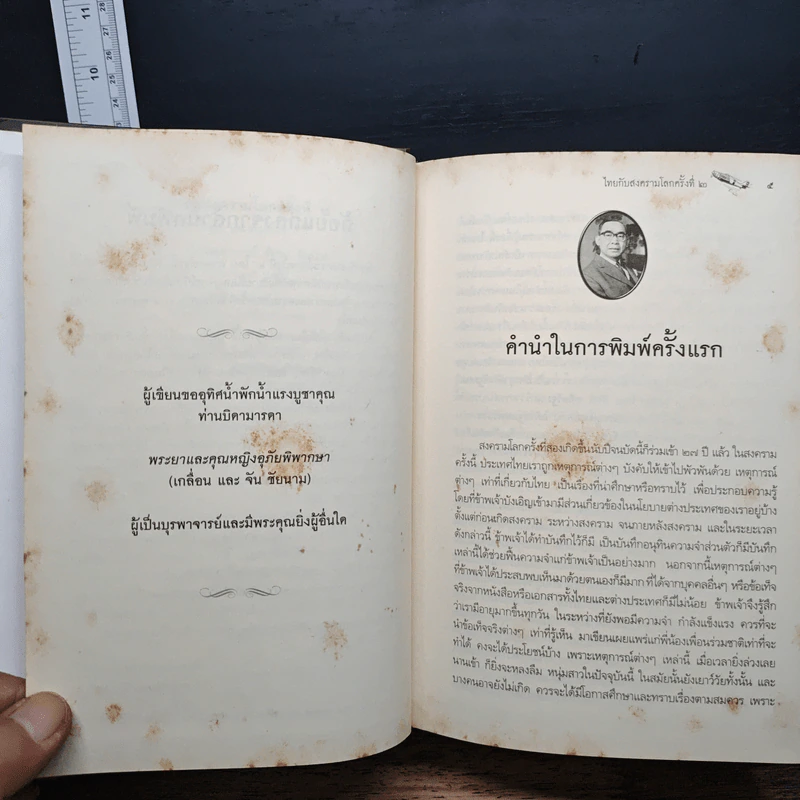 11
10
28
27
26
25
24
23
ผู้เขียนขออุทิศน้ำพักน้ำแรงบูชาคุณ
ท่านบิดามารดา
พระยาและคุณหญิงอุภัยพิพากษา
(เกลื่อน และ จัน ชัยนาม)
ผู้เป็นบุรพาจารย์และมีพระคุณยิ่งผู้อื่นใด
ไทยกับสงครามโลกครั้งที่ ๒ ๕
คำนำในการพิมพ์ครั้งแรก
สงครามโลกครั้งที่สองเกิดขึ้นนับปีจนบัดนี้ก็ร่วมเข้า ๒๗ ปี แล้ว ในสงคราม
ครั้งนี้ ประเทศไทยเราถูกเหตุการณ์ต่างๆ บังคับให้เข้าไปพัวพันด้วย เหตุการณ์
ต่างๆ เท่าที่เกี่ยวกับไทย เป็นเรื่องที่น่าศึกษาหรือทราบไว้ เพื่อประกอบความรู้
โดยที่ข้าพเจ้าบังเอิญเข้ามามีส่วนเกี่ยวข้องในนโยบายต่างประเทศของเราอยู่บ้าง
ตั้งแต่ก่อนเกิดสงคราม ระหว่างสงคราม จนภายหลังสงคราม และในระยะเวลา
ดังกล่าวนี้ ข้าพเจ้าได้ทำบันทึกไว้ก็มี เป็นบันทึกอนุทินความจำส่วนตัวก็มีบันทึก
เหล่านี้ได้ช่วยฟื้นความจำแก่ข้าพเจ้าเป็นอย่างมาก นอกจากนี้เหตุการณ์ต่างๆ
ที่ข้าพเจ้าได้ประสบพบเห็นมาด้วยตนเองก็มีมากที่ได้จากบุคคลอื่นๆ หรือข้อเท็จ
จริงจากหนังสือหรือเอกสารทั้งไทยและต่างประเทศก็มีไม่น้อย ข้าพเจ้าจึงรู้สึก
ว่าเรามีอายุมากขึ้นทุกวัน ในระหว่างที่ยังพอมีความจำ กำลังแข็งแรง ควรที่จะ
นำข้อเท็จจริงต่างๆ เท่าที่รู้เห็น มาเขียนเผยแพร่แก่พี่น้องเพื่อนร่วมชาติเท่าที่จะ
ทำได้ คงจะได้ประโยชน์บ้าง เพราะเหตุการณ์ต่างๆ เหล่านี้ เมื่อเวลายิ่งล่วงเลย
นานเข้า ก็ยิ่งจะหลงลืม หนุ่มสาวในปัจจุบันนี้ ในสมัยนั้นยังเยาว์วัยทั้งนั้น และ
บางคนอาจยังไม่เกิด ควรจะได้มีโอกาสศึกษาและทราบเรื่องตามสมควร เพราะ